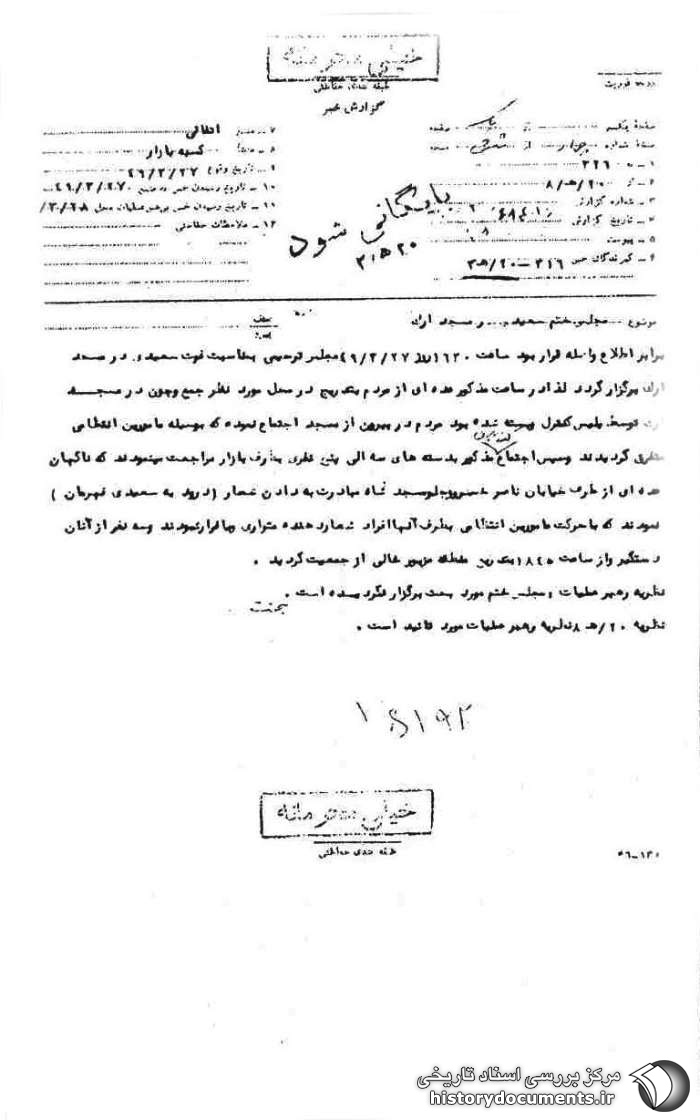 خیلی محرمانه
طبقه بندی حفاظتی
گزارش خبر
درجه فوریت
صفحه یکم از یک صفحه
نسخه شماره چهار از شش نسخه
۱ – به ۳۱۶
۲ – از ۲۰/هـ ۸
۳ – شماره گزارش
۴ – تاریخ گزارش
۵ – پیوست
۶ – گیرندگان خبر ۳۱۶ – ۲۰/هـ ۳
۷ – منبع اتفاقی
۸ – منشأ کسبه بازار
۹ – تاریخ وقوع ۴۹/۳/۲۷
۱۰ – تاریخ رسیدن خبر به منبع ۴۹/۳/۲۷
۱۱ – تاریخ رسیدن خبر برهبر عملیات محل
۱۲ – ملاحظات حفاظتی
بایگانی شود
موضوع مجلس ختم سعیدی در مسجد ارک
برابر اطلاع واصله قرار بود ساعت ۱۶۳۰ روز ۴۹/۳/۲۷ مجلس ترحیمی بمناسبت فوت سعیدی در مسجد
ارک برگزار گردد لذا در ساعت مذکور عده ای از مردم بتدریج در محل مورد نظر جمع و چون در مسجد
ارک توسط پلیس کنترل و بسته شده بود مردم در بیرون از مسجد اجتماع نموده که بوسیله مامورین انتظامی
متفرق گردیدند و سپس اجتماع مذکور بدسته های سه الی پنج نفری بطرف بازار مراجعت مینمودند که ناگهان
عده ای از طرف خیابان ناصر خسرو جلو مسجد شاه مبادرت به دادن شعار ( درود به سعیدی قهرمان )
نمودند که با حرکت مامورین انتظامی بطرف آنها افراد شعار دهنده متواری و یا فرار نمودند و سه نفر از آنان
دستگیر و از ساعت ۱۸۴۵ بتدریج منطقه مزبور خالی از جمعیت گردید .
نظریه رهبر عملیات : مجلس ختم مورد بحث برگزار نگردیده است .
بهجت
نظریه ۲۰/هـ ۸ نظریه رهبر عملیات مورد تائید است .
خیلی محرمانه
طبقه بندی حفاظتی
مرکز بررسی اسناد تاریخی
historydocuments.ir